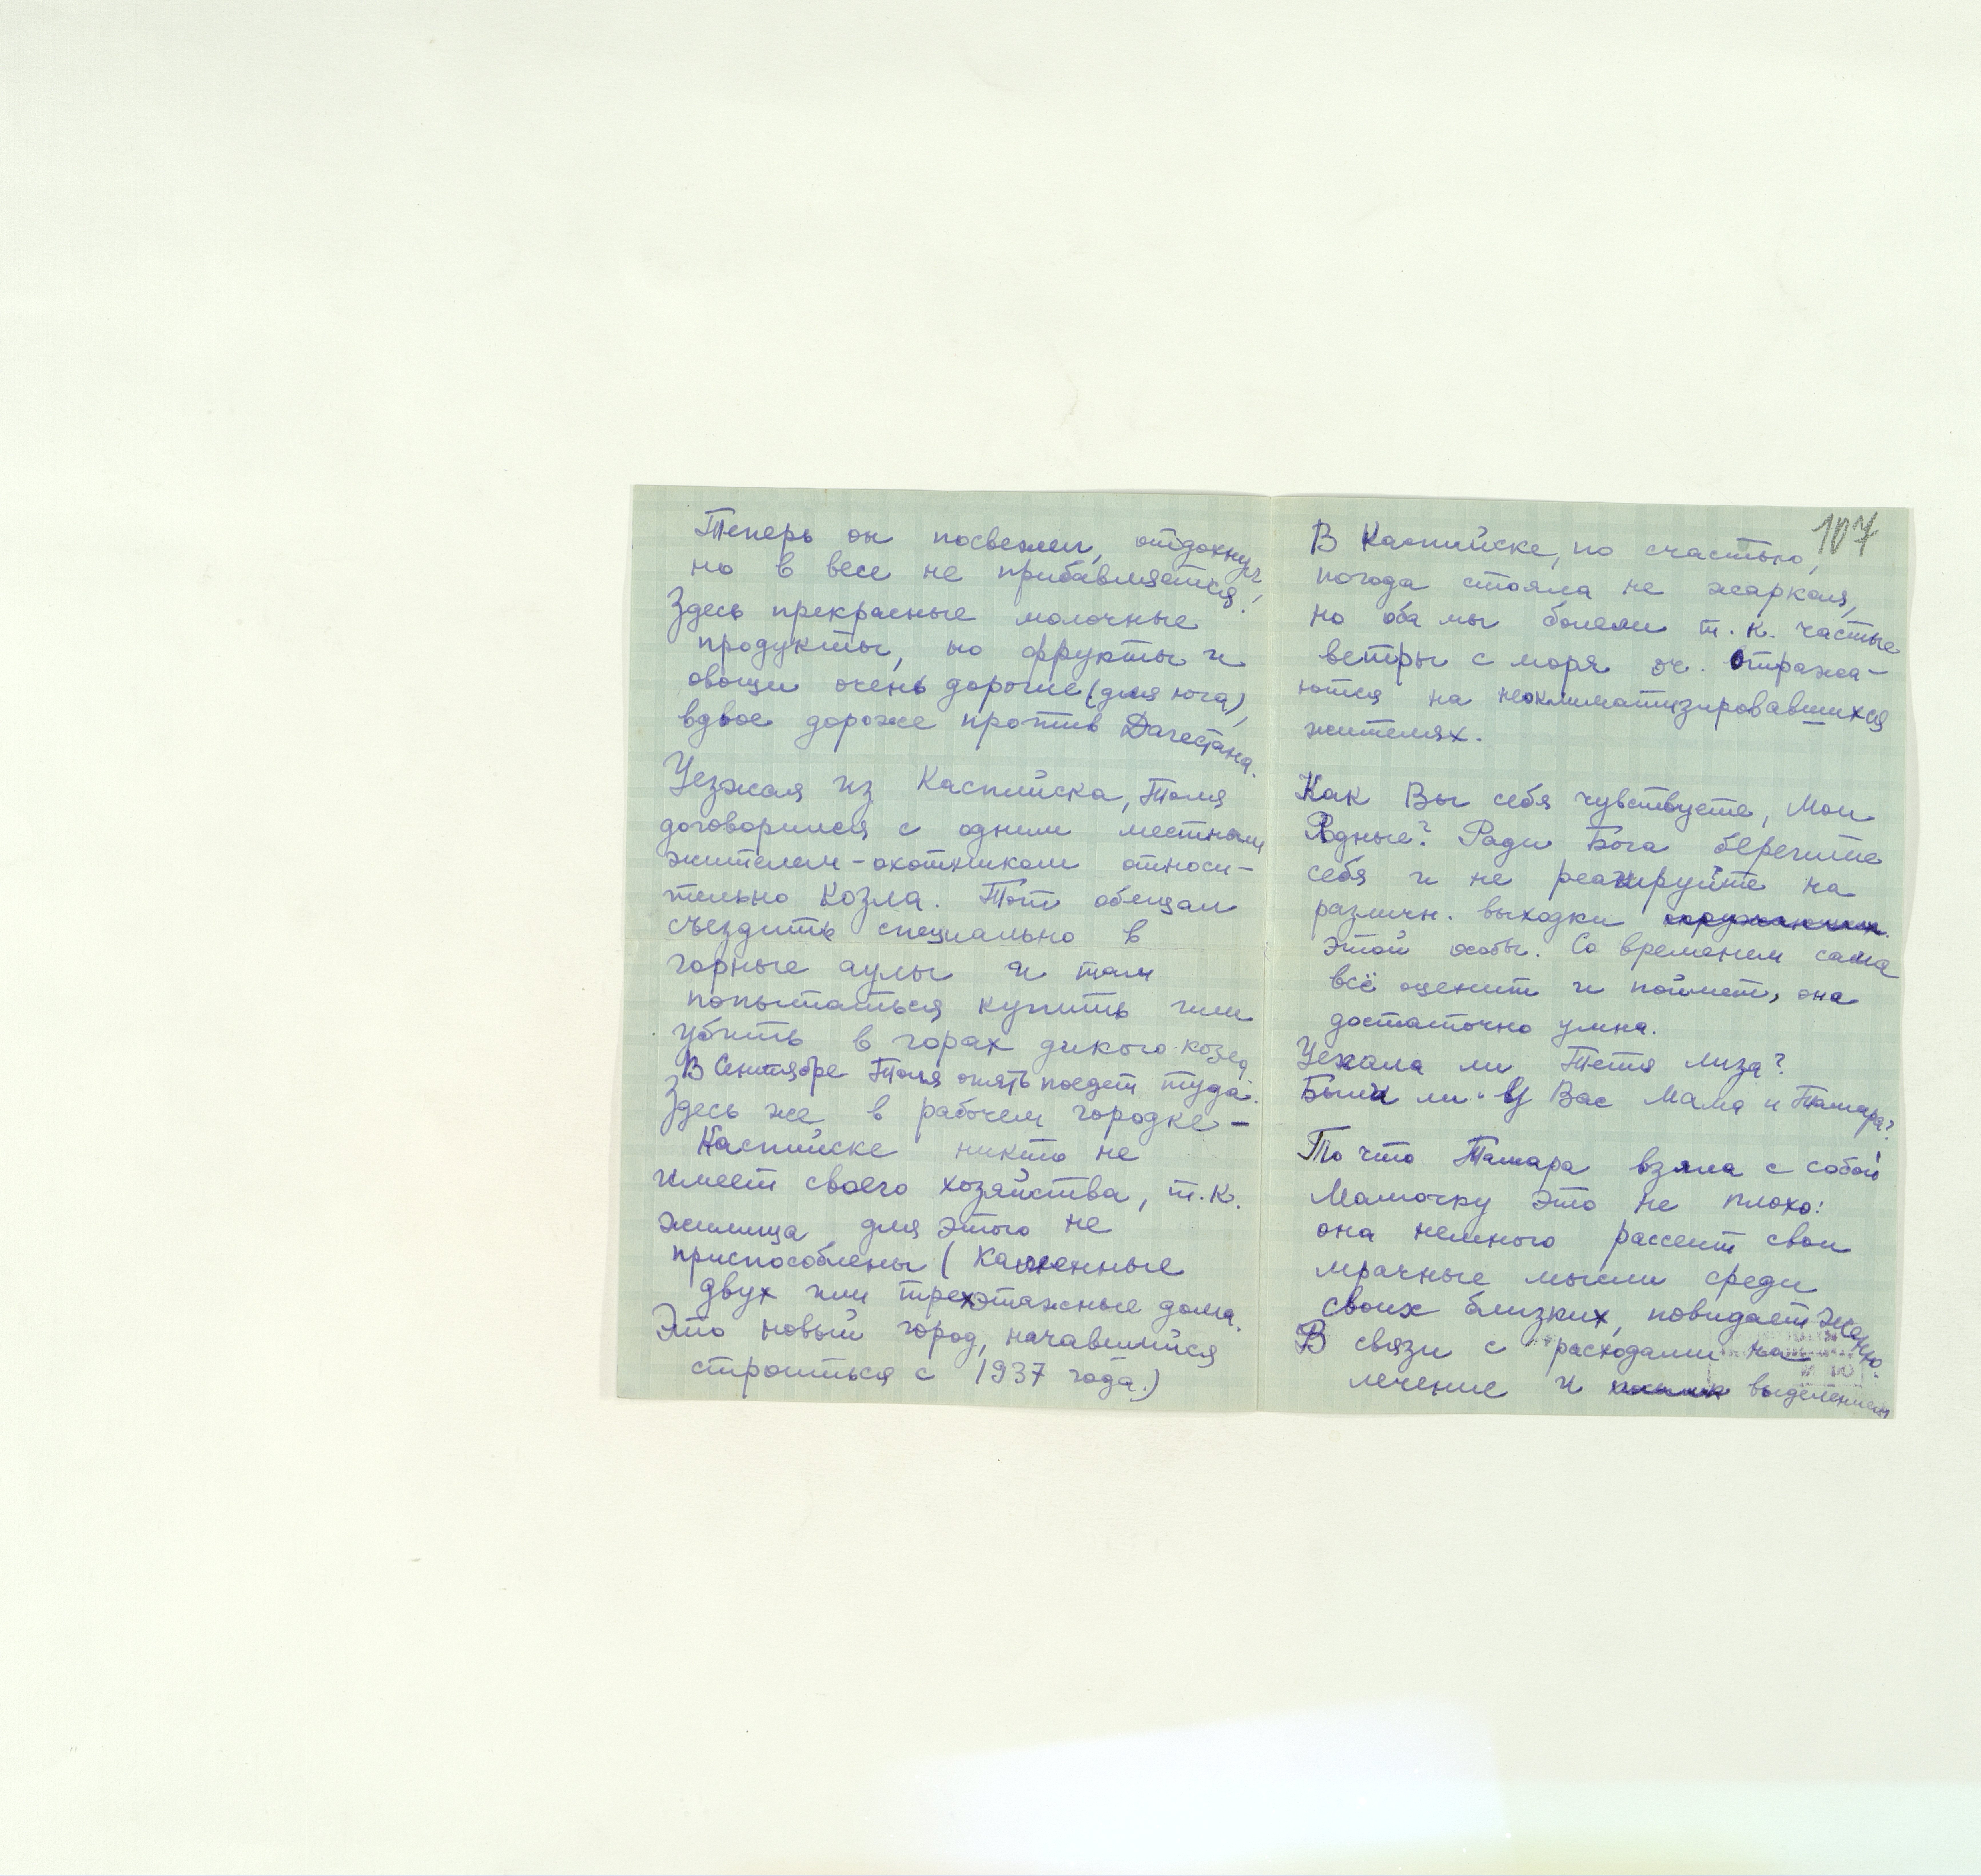 Теперь он посвежел, отдохнул,
но в весе не прибавляется.
Здесь прекрасные молочные
продукты, но фрукты и
овощи очень дорогие (для юга),
вдвое дороже против Дагестана.
Уезжая из Каспийска, Толя
договорился с одним местным
жителем-охотником относи-
тельно козла. Тот обещал
съездить специально в
горные аулы и там
попытаться купить или
убить в горах дикого козла
В Сентябре Толя опять поедет туда.
Здесь же в рабочем городке-
Каспийске никто не
имеет своего хозяйства, т.к.
жилища для этого не
приспособлены (каменные
двух или трехэтажные дома.
Это новый город, начавшийся
строиться с 1937 года.)
107
В Каспийске, по счастью,
погода стояла не жаркая,
но оба мы болели т.к. частые
ветры с моря оч. отража-
ются на неоклиматизировавшихся
жителях.
Как Вы себя чувствуете, Мои
Родные? Ради Бога берегите
себя и не реагируйте на
различн. выходки окружающих
этой особы. Со временем сама
всё оценит и поймет, она
достаточно умна.
Уехала ли Тетя Лиза?
Были ли у Вас Мама и Тамара?
То что Тамара взяла с собой
Мамочку это не плохо:
она немного рассеит свои
мрачные мысли среди
своих близких, повидает Женю.
В связи с расходами на
лечение и выделением